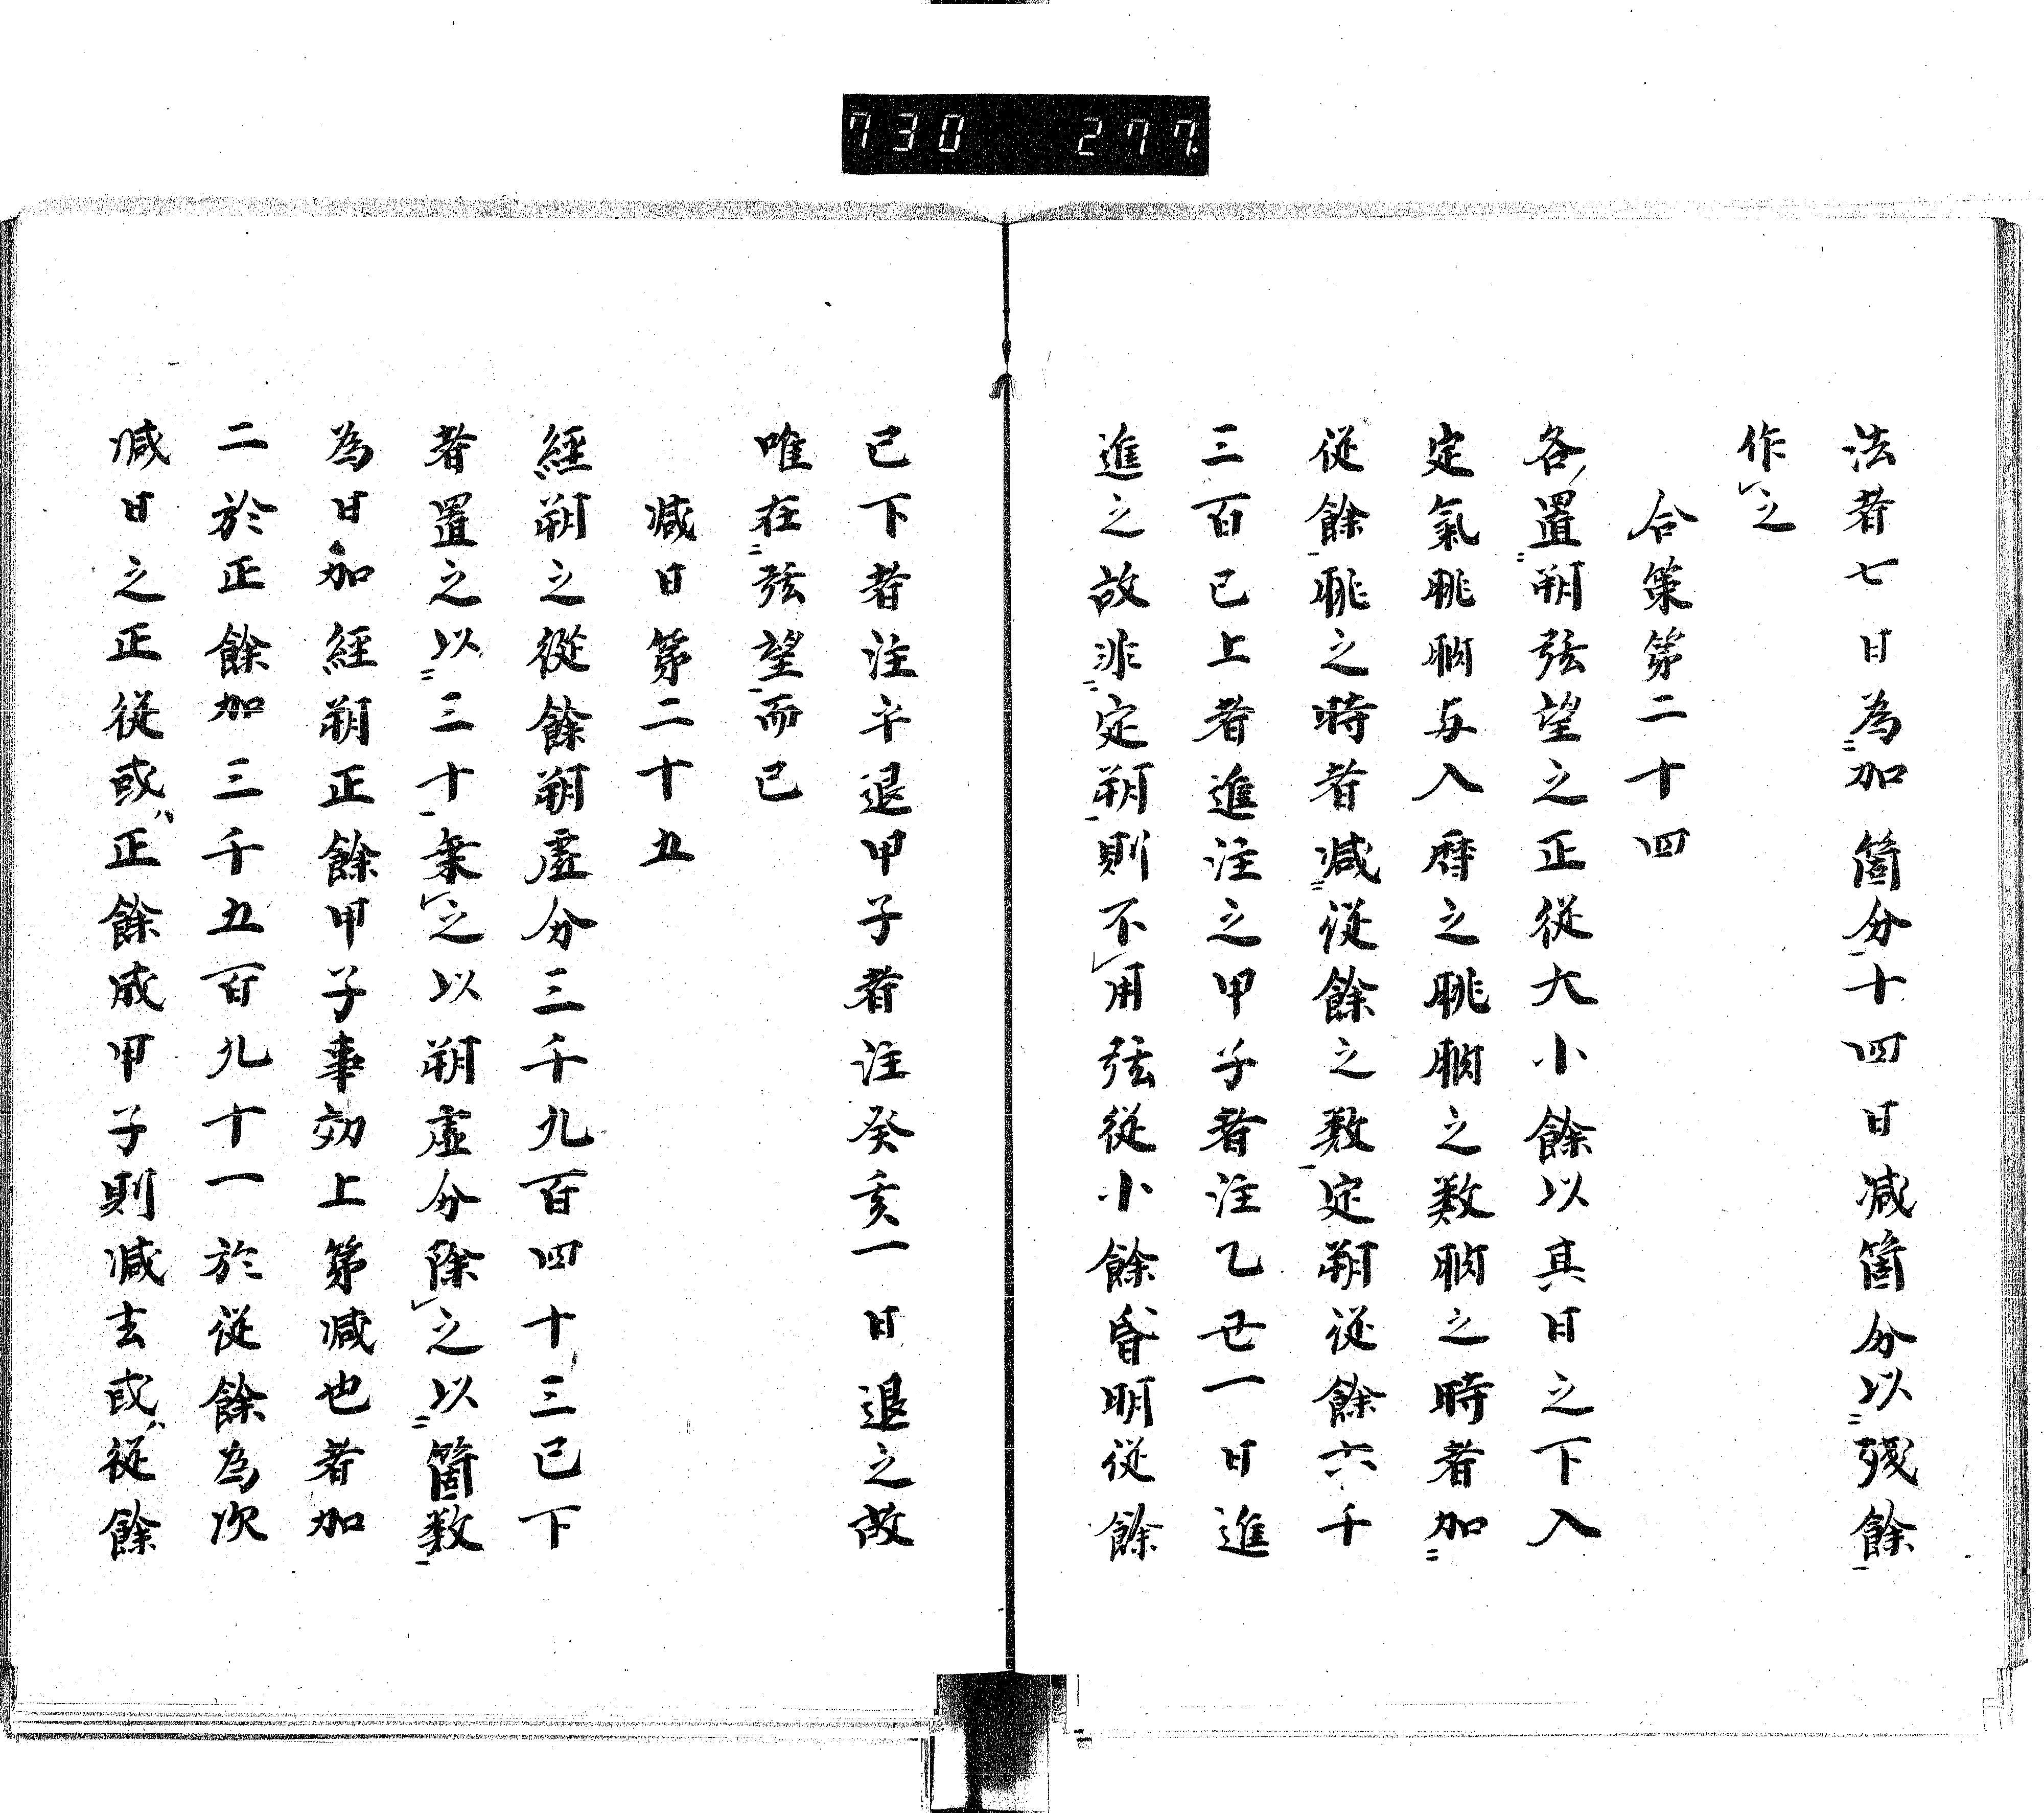 730 277.
法者七日為加箇分十四日減箇分以残餘
作之
合策第二十四
各置朔弦望之正從大小餘以其日之下入
定氣朓朒与入暦之朓朒之数朒之時者加
從餘朓之時者减從餘之数定朔從餘六千
三百已上者進注之甲子者注乙丑一日進
進之故非定朔則不用弦從小餘昏明從餘
已下者注乎退甲子者注癸亥一日退之故
唯在弦望而已
减日第二十五
經朔之從餘朔虚分三千九百四十三已下
者置之以三十乗之以朔虚分除之以箇数
為日加經朔正餘甲子事効上第减也者加
二於正餘加三千五百九十一於從餘為次
减日之正從或正餘成甲子則减去或從餘